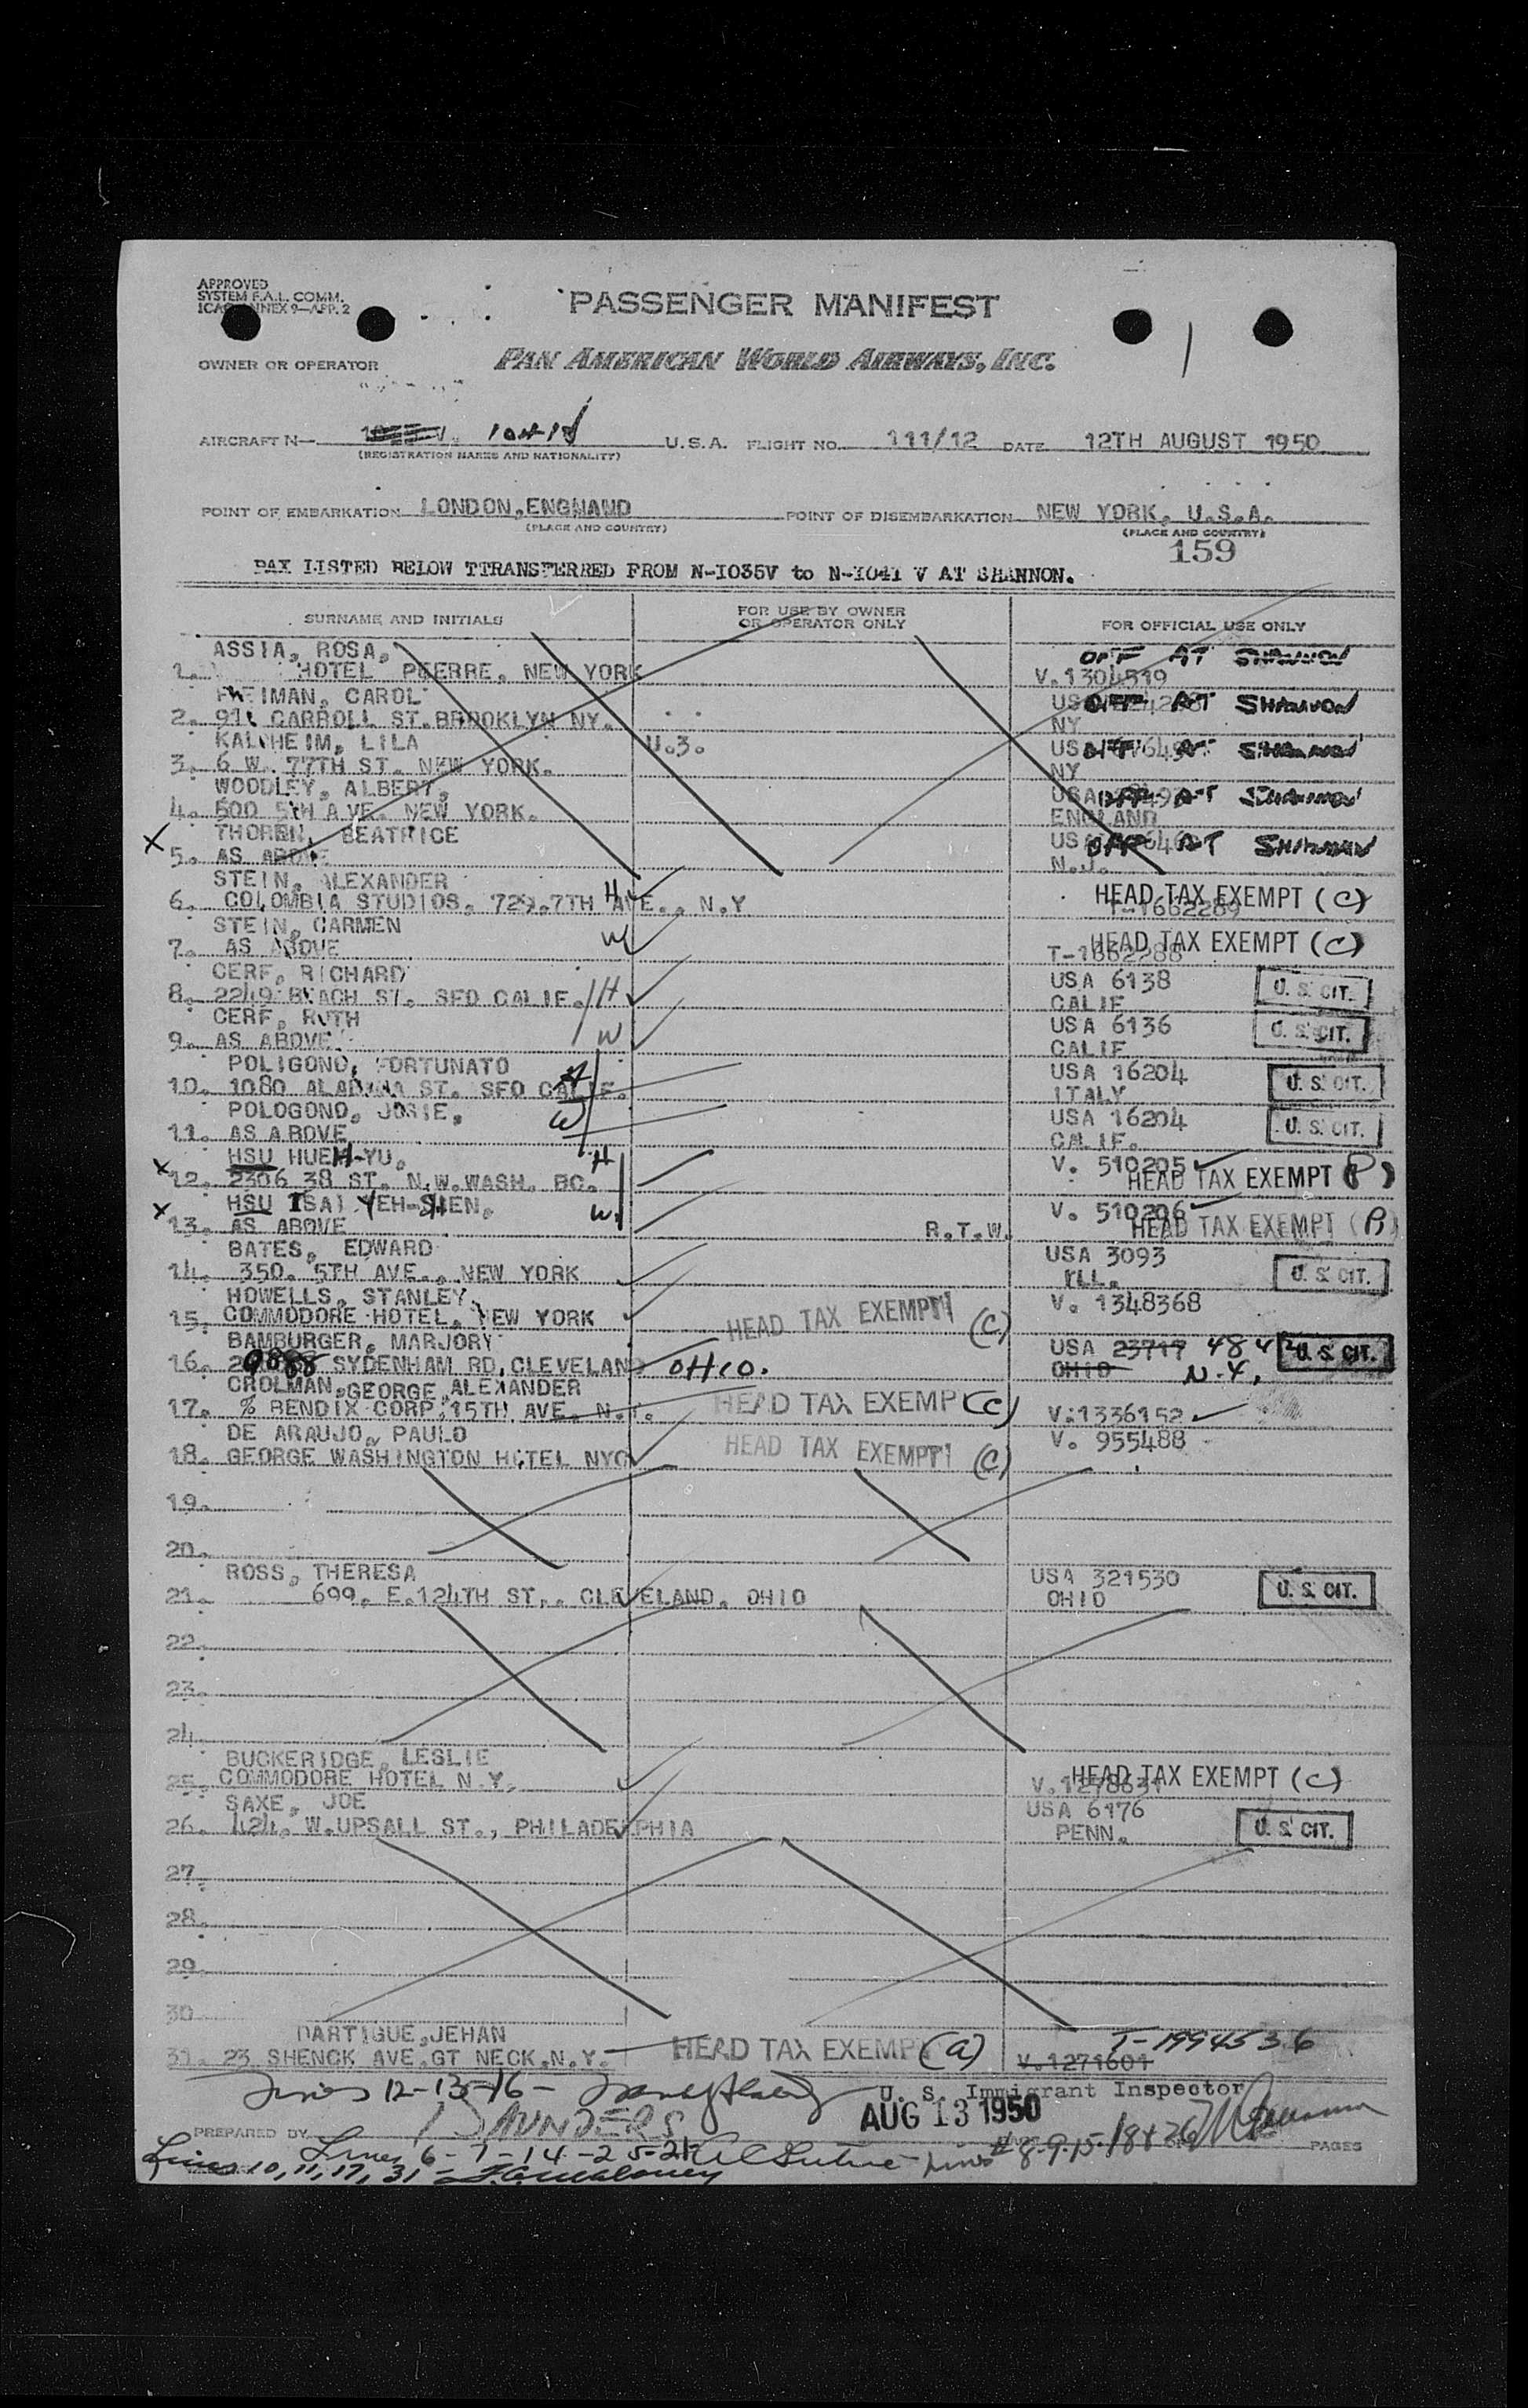 APPROVED
SYSTEM F.A.L. COMM.
ICAO ANNEX 9—APP. 2
PASSENGER MANIFEST
OWNER OR OPERATOR
PAN AMERICAN WORLD AIRWAYS, INC.
AIRCRAFT N— U.S.A. FLIGHT NO. 111/12 DATE 12TH AUGUST 1950
(REGISTRATION MARKS AND NATIONALITY)
POINT OF EMBARKATION LONDON, ENGLAND POINT OF DISEMBARKATION NEW YORK, U.S.A.
(PLACE AND COUNTRY) (PLACE AND COUNTRY)
159
PAX LISTED BELOW TTRANSFERRED FROM N-1035V to N-1041 V AT SHANNON.
SURNAME AND INITIALS
FOR USE BY OWNER
OR OPERATOR ONLY
FOR OFFICIAL USE ONLY
ASSIA, ROSA, OFF AT SHANNON
1. HOTEL PEERRE, NEW YORK V.1304519
CAROL OFF AT SHANNON
2. CARROLL ST. BROOKLYN NY. NY
KALCHEIM, LILA OFF AT SHANNON
3. 6 W. 77TH ST. NEW YORK. NY
WOODLEY, ALBERT, OFF AT SHANNON
4. 500 5TH AVE. NEW YORK. ENGLAND
X THOREN, BEATRICE OFF AT SHANNON
5. AS ABOVE N.J.
STEIN, ALEXANDER HEAD TAX EXEMPT (C)
6. COLOMBIA STUDIOS. 729.7TH AVE., N.Y H T-1662289
STEIN, CARMEN HEAD TAX EXEMPT (C)
7. AS ABOVE W T-1662288
CERF, RICHARD USA 6138 U.S. CIT.
8. 2249 BEACH ST. SFO CALIF. H CALIF
CERF, RUTH USA 6136 U.S. CIT.
9. AS ABOVE W CALIF
POLIGONO, FORTUNATO USA 16204 U.S. CIT.
10. 1080 ALABAMA ST. SFO CALIF. H ITALY
POLOGONO, JOSIE, USA 16204 U.S. CIT.
11. AS ABOVE W CALIF.
X HSU HUEH-YU. H V. 510205
12. 2306 38 ST. N.W. WASH. DC. HEAD TAX EXEMPT (P)
X HSU TSAI YEH-SHEN. W. V. 510206
13. AS ABOVE R.T.W. HEAD TAX EXEMPT (P)
BATES, EDWARD USA 3093
14. 350. 5TH AVE., NEW YORK ILL. U.S. CIT.
HOWELLS, STANLEY V. 1348368
15. COMMODORE HOTEL. NEW YORK HEAD TAX EXEMPT (C)
BAMBURGER, MARJORY USA 23717 4842 U.S. CIT.
16. SYDENHAM RD, CLEVELAND OHIO. OHIO N.Y.
CROLMAN, GEORGE ALEXANDER
17. % BENDIX CORP. 15TH AVE. N.Y. HEAD TAX EXEMPT (C) V.1336152
DE ARAUJO, PAULO V. 955488
18. GEORGE WASHINGTON HOTEL NYC HEAD TAX EXEMPT (C)
19.
20.
ROSS, THERESA USA 321530
21. 699. E.124TH ST., CLEVELAND, OHIO OHIO U.S. CIT.
22.
23.
24.
BUCKERIDGE, LESLIE
25. COMMODORE HOTEL N.Y. HEAD TAX EXEMPT (C)
SAXE, JOE USA 6176
26. 424. W.UPSALL ST., PHILADELPHIA PENN. U.S. CIT.
27.
28.
29.
30.
DARTIGUE, JEHAN T-1994536
31. 23 SHENCK AVE. GT NECK. N.Y. HEAD TAX EXEMPT (a) V.1271601
Lines 12-13-16- U. S. Immigrant Inspector
PREPARED BY SAUNDERS AUG 13 1950 PAGES
Lines 6-7-14-25-21 Lines # 8.9.15.18 & 26
Lines 10, 11, 17, 31-